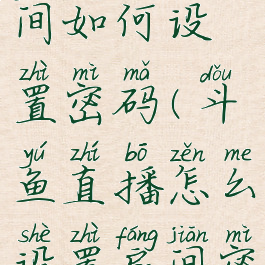 间如何设
zhì mì mǎ dǒu
置密码(斗
yú zhí bō zěn me
鱼直播怎么
shè zhì fáng jiān mì
设置房间密